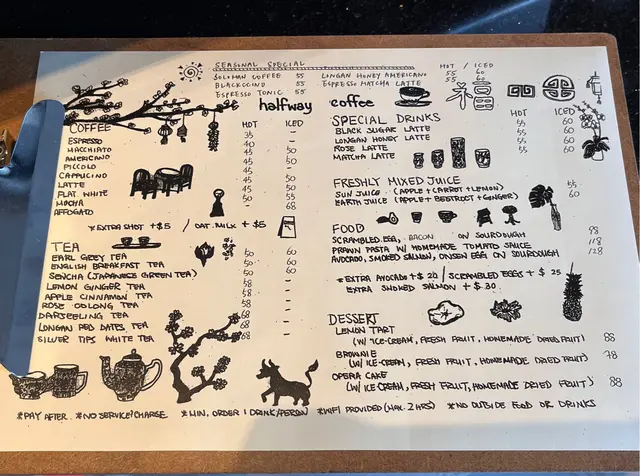 SEASONAL SPECIAL HOT / ICED
SOLOMAN COFFEE 55 LONGAN HONEY AMERICANO 55 60
BLACKCCINO 55 ESPRESSO MATCHA LATTE 55 60
ESPRESSO TONIC 55
halfway coffee
福
COFFEE HOT ICED
ESPRESSO 35 -
MACCHIATO 40 -
AMERICANO 45 50
PICCOLO 45
CAPPUCINO 45 50
LATTE 45 50
FLAT WHITE 45 50
MOCHA 50 55
AFFOGATO - 68
*EXTRA SHOT +$5 / OAT MILK + $5
TEA
EARL GREY TEA 50 60
ENGLISH BREAKFAST TEA 50 60
SENCHA (JAPANESE GREEN TEA) 50 60
LEMON GINGER TEA 58 -
APPLE CINNAMON TEA 58 -
ROSE OOLONG TEA 58 -
DARJEELING TEA 68 -
LONGAN RED DATES TEA 68 -
SILVER TIPS WHITE TEA 68 -
SPECIAL DRINKS HOT ICED
BLACK SUGAR LATTE 55 60
LONGAN HONEY LATTE 55 60
ROSE LATTE 55 60
MATCHA LATTE 55 60
FRESHLY MIXED JUICE
SUN JUICE (APPLE+CARROT+LEMON) 55
EARTH JUICE (APPLE+BEETROOT+GINGER) 60
FOOD
SCRAMBLED EGG, BACON ON SOURDOUGH 98
PRAWN PASTA W/ HOMEMADE TOMATO SAUCE 118
AVOCADO, SMOKED SALMON, ONSEN EGG ON SOURDOUGH 128
*EXTRA AVOCADO +$20 / SCRAMBLED EGGS + $25
EXTRA SMOKED SALMON + $30
DESSERT
LEMON TART
(W/ ICE-CREAM, FRESH FRUIT, HOMEMADE DRIED FRUIT) 88
BROWNIE
(W/ ICE-CREAM, FRESH FRUIT, HOMEMADE DRIED FRUIT) 78
OPERA CAKE
(W/ ICE-CREAM, FRESH FRUIT, HOMEMADE DRIED FRUIT) 88
*PAY AFTER *NO SERVICE CHARGE *MIN. ORDER 1 DRINK/PERSON *WIFI PROVIDED (MAX. 2 HRS) *NO OUTSIDE FOOD OR DRINKS